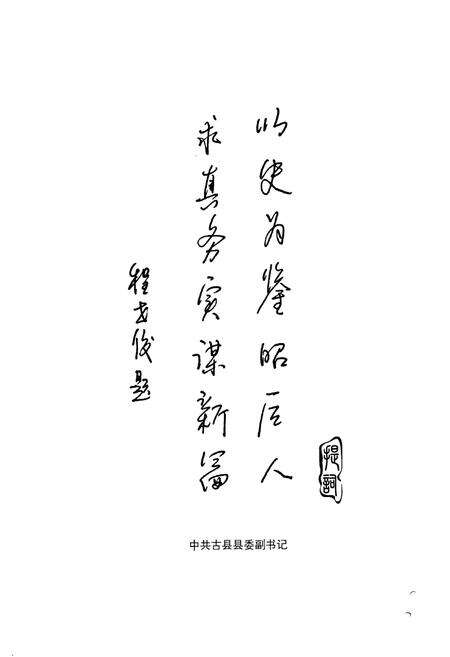 以史为鉴昭后人
求真务实谋新篇
程 俊题
提词
中共古县县委副书记